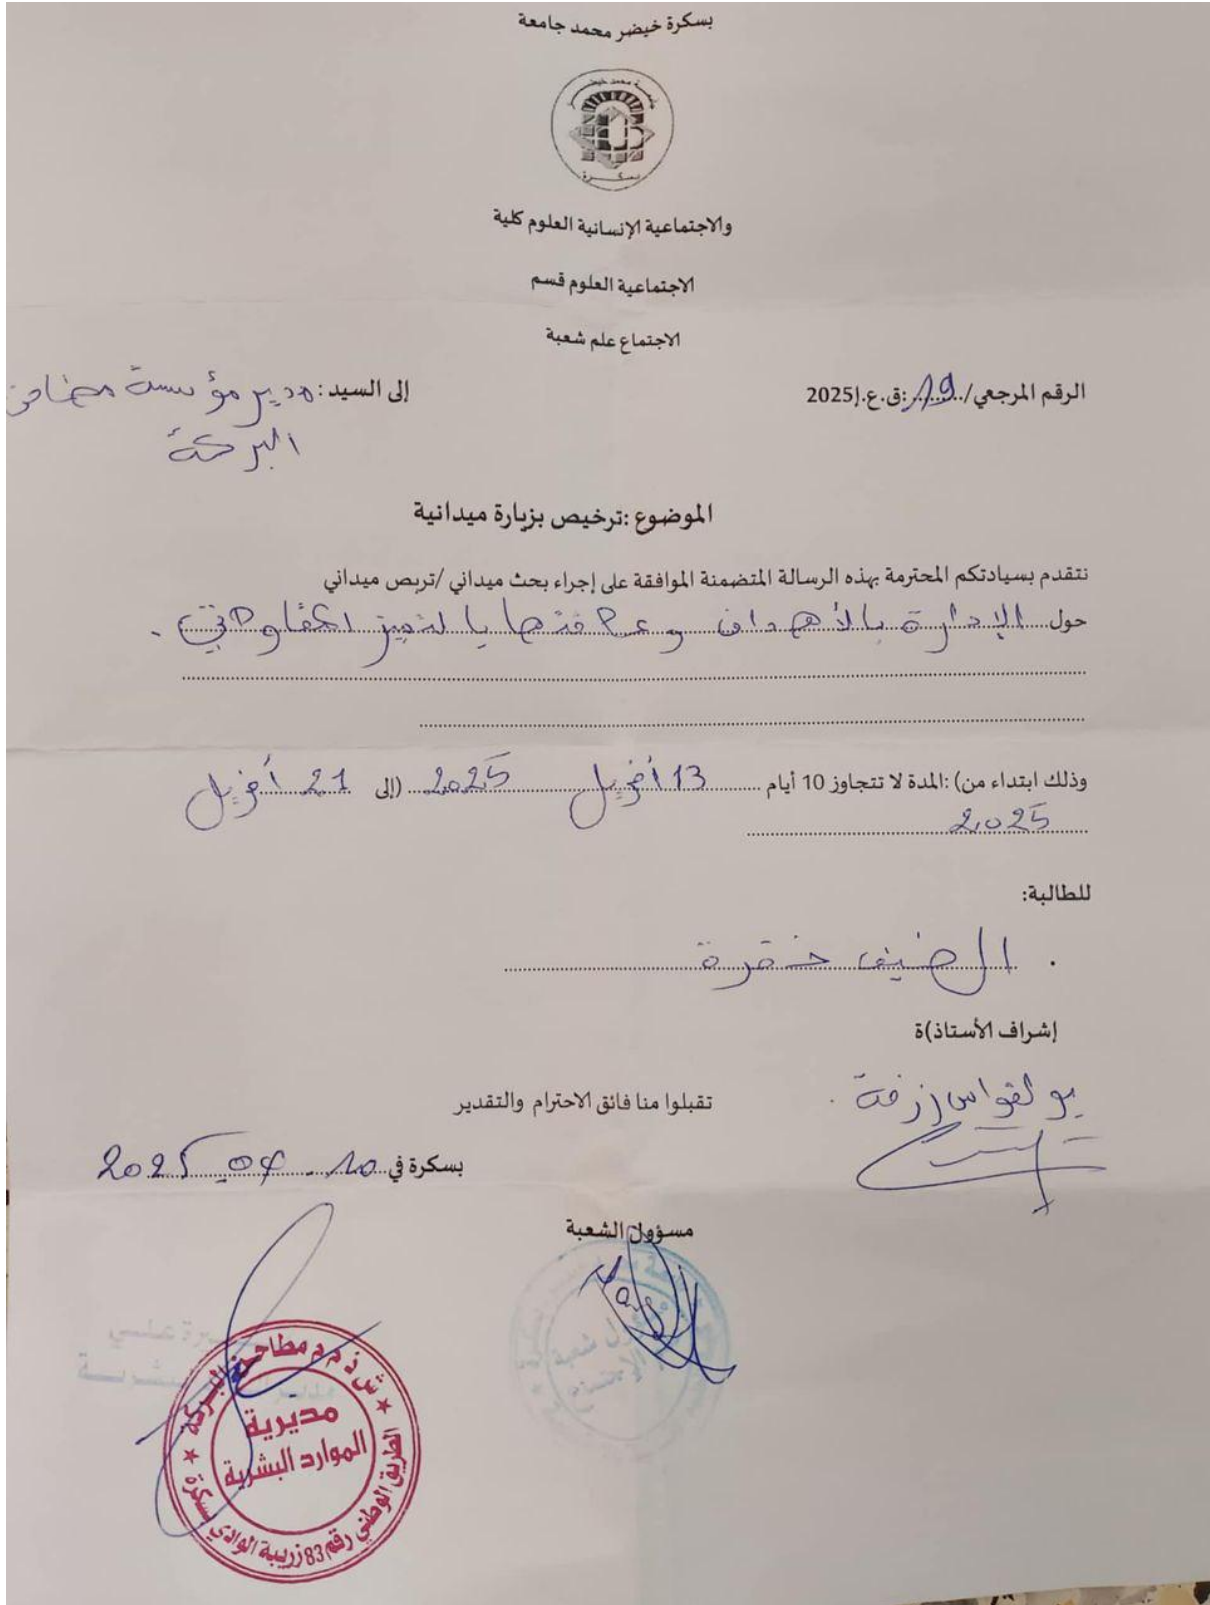 بسكرة خيضر محمد جامعة
جامعة محمد خيضر
بسكرة
والاجتماعية الإنسانية العلوم كلية
الاجتماعية العلوم قسم
الاجتماع علم شعبة
الرقم المرجعي/...19...:ق.ع.إ2025
إلى السيد: مدير مؤسسة مطاحن
البركة
الموضوع :ترخيص بزيارة ميدانية
نتقدم بسيادتكم المحترمة بهذه الرسالة المتضمنة الموافقة على إجراء بحث ميداني /تربص ميداني
حول الإدارة بالأهداف وعلاقتها بالتميز الكفاوماتي.
وذلك ابتداء من) :المدة لا تتجاوز 10 أيام 13 أفريل 2025 (إلى 21 أفريل
2025
للطالبة:
. الضيف خقرة
إشراف الأستاذ)ة
بولقواس زرفة
تقبلوا منا فائق الاحترام والتقدير
بسكرة في 10 - 04 - 2025
مسؤول الشعبة
ش ذ م م مطاحن البركة
مديرية
الموارد البشرية
الطريق الوطني رقم 83 زريبة الوادي بسكرة